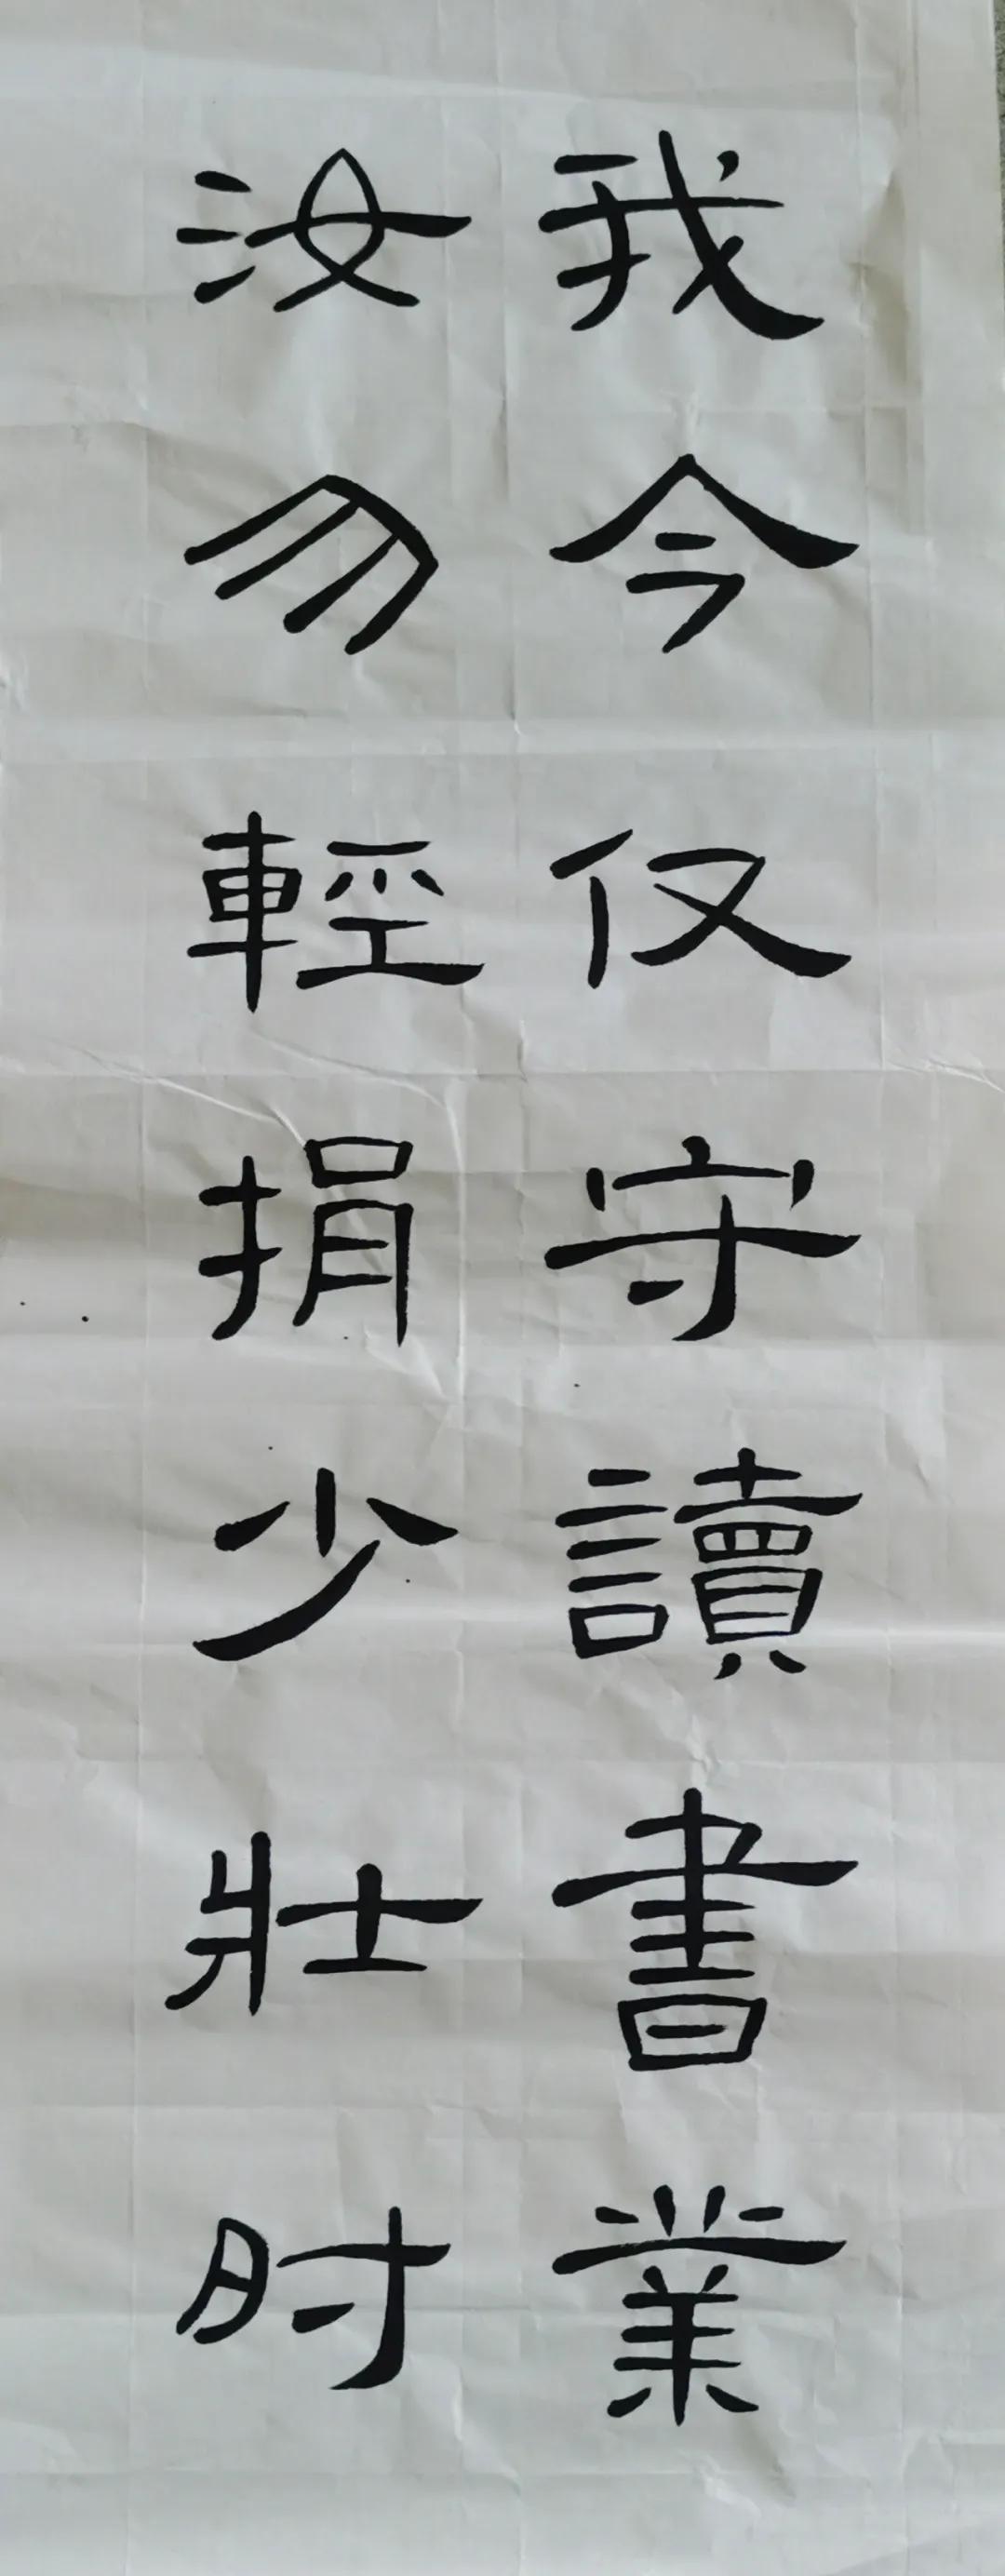 我今仅守讀書業
汝勿輕捐少壯时